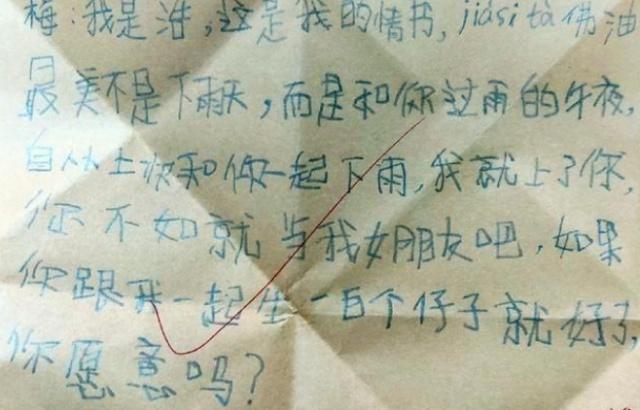 梅:我是浩,这是我的情书,jiásità佛油
最美不是下雨天,而是和你过雨的午夜,
自从上次和你一起下雨,我就上了你,
你不如就与我女朋友吧,如果
你跟我一起生一百个仔子就好了,
你愿意吗?